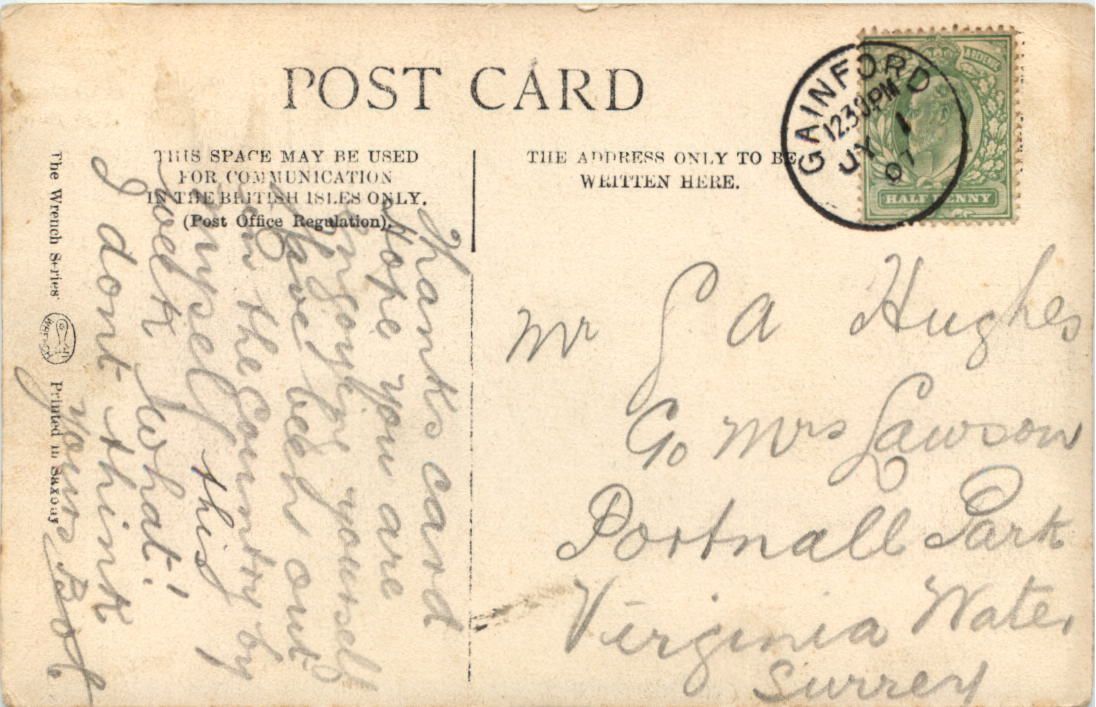 POST CARD
THIS SPACE MAY BE USED
FOR COMMUNICATION
IN THE BRITISH ISLES ONLY.
(Post Office Regulation).
THE ADDRESS ONLY TO BE
WRITTEN HERE.
GAINFORD
12.30PM
JY 1
07
HALFPENNY
The Wrench Series
Printed in Saxony
Thanks card
Hope you are
engoying yourself
Have been out
in the Country by
myself this
week What!
I dont think
yours Bob
Mr A Hughes
Co Mrs Lawson
Portnall Park
Virginia Water
Surrey